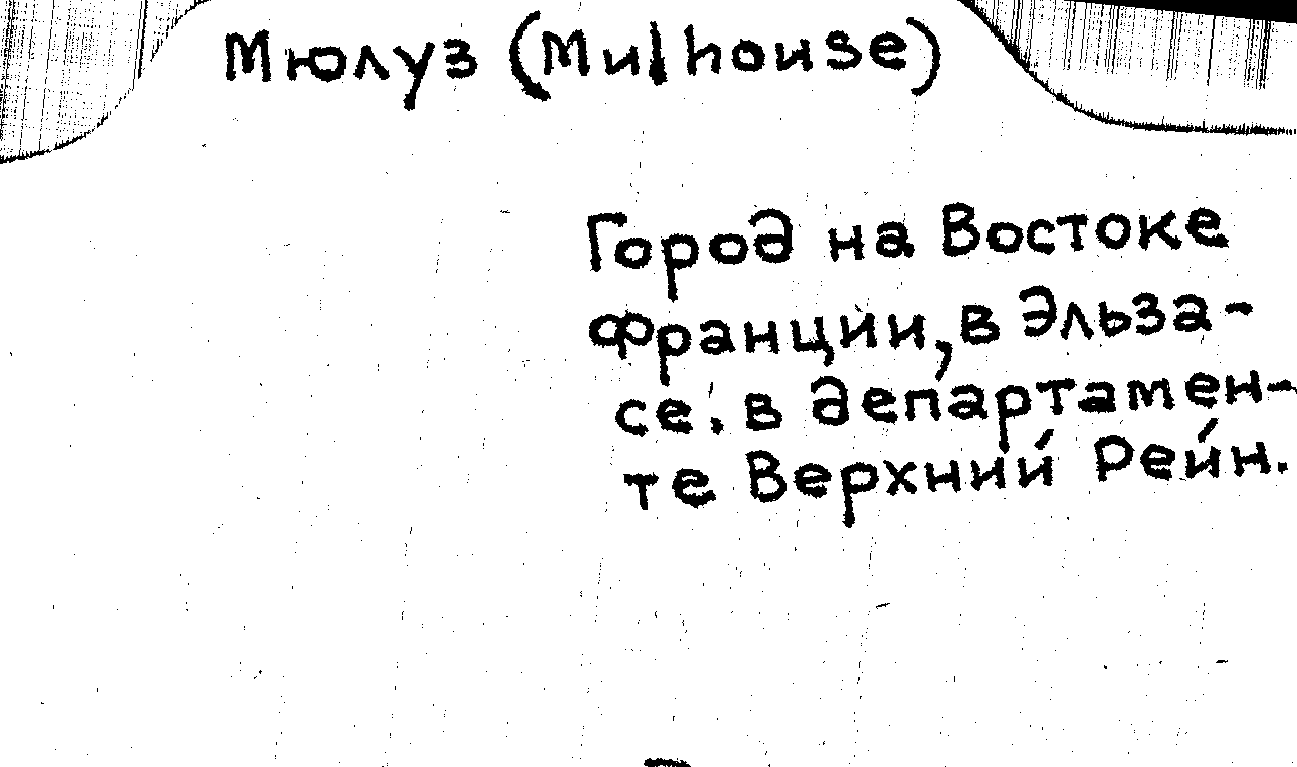 Мюлуз (Mulhouse)
Город на Востоке
Франции, в Эльза-
се. в департамен-
те Верхний Рейн.